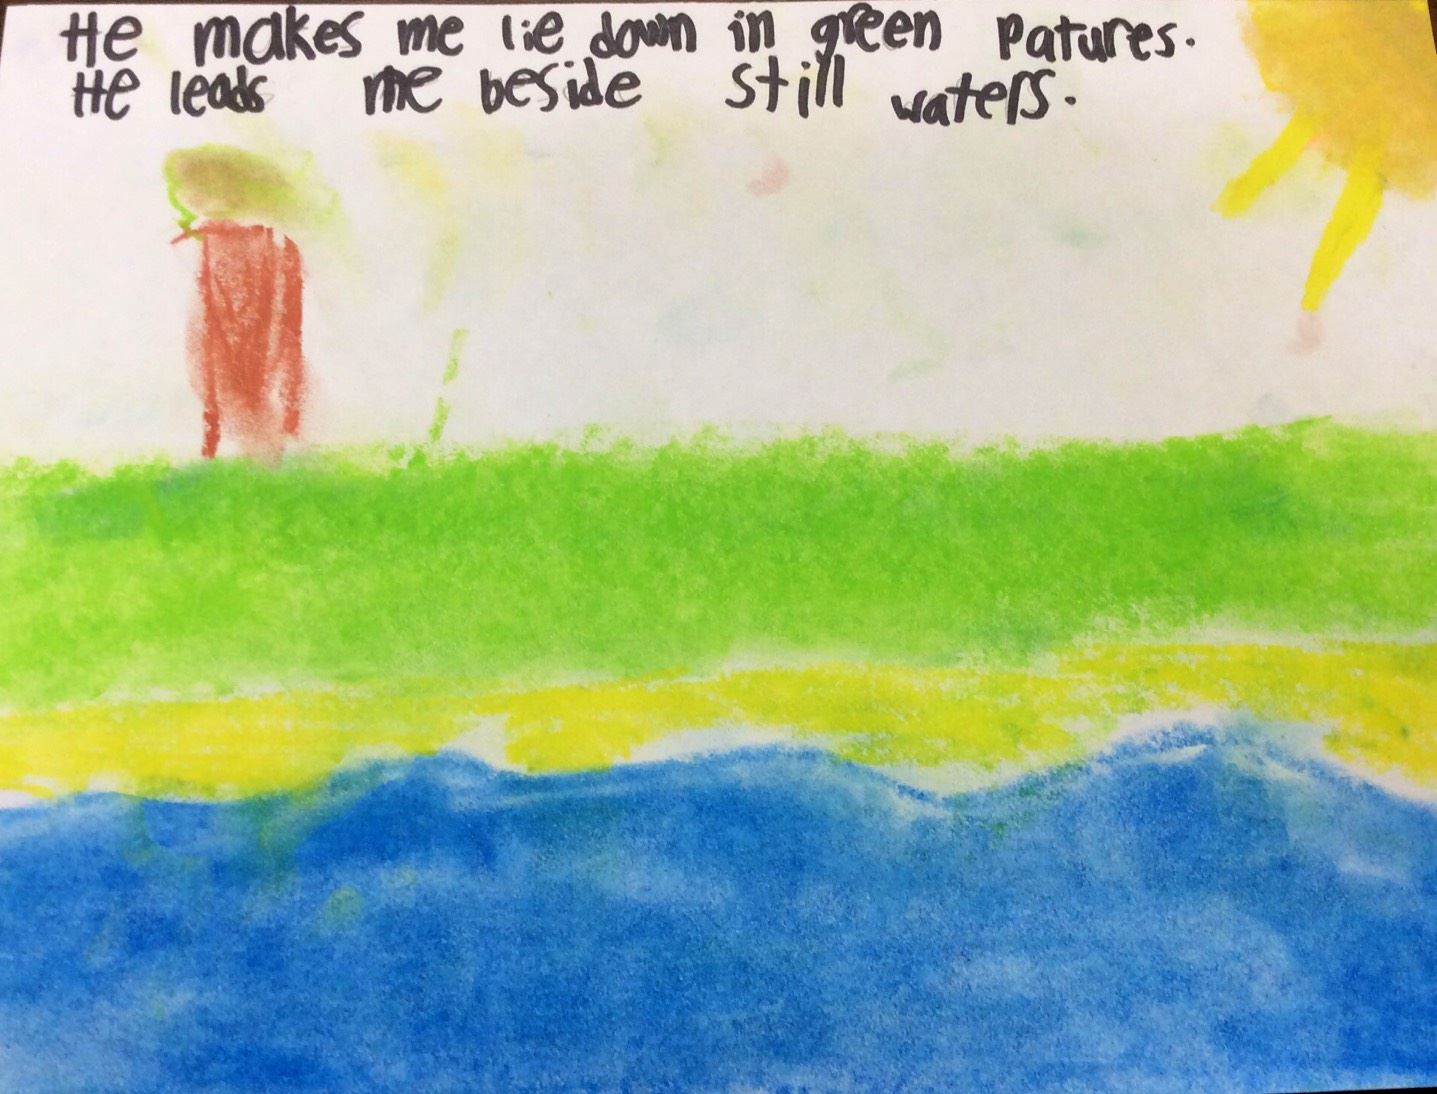 He makes me lie down in green Patures.
He leads me beside still waters.